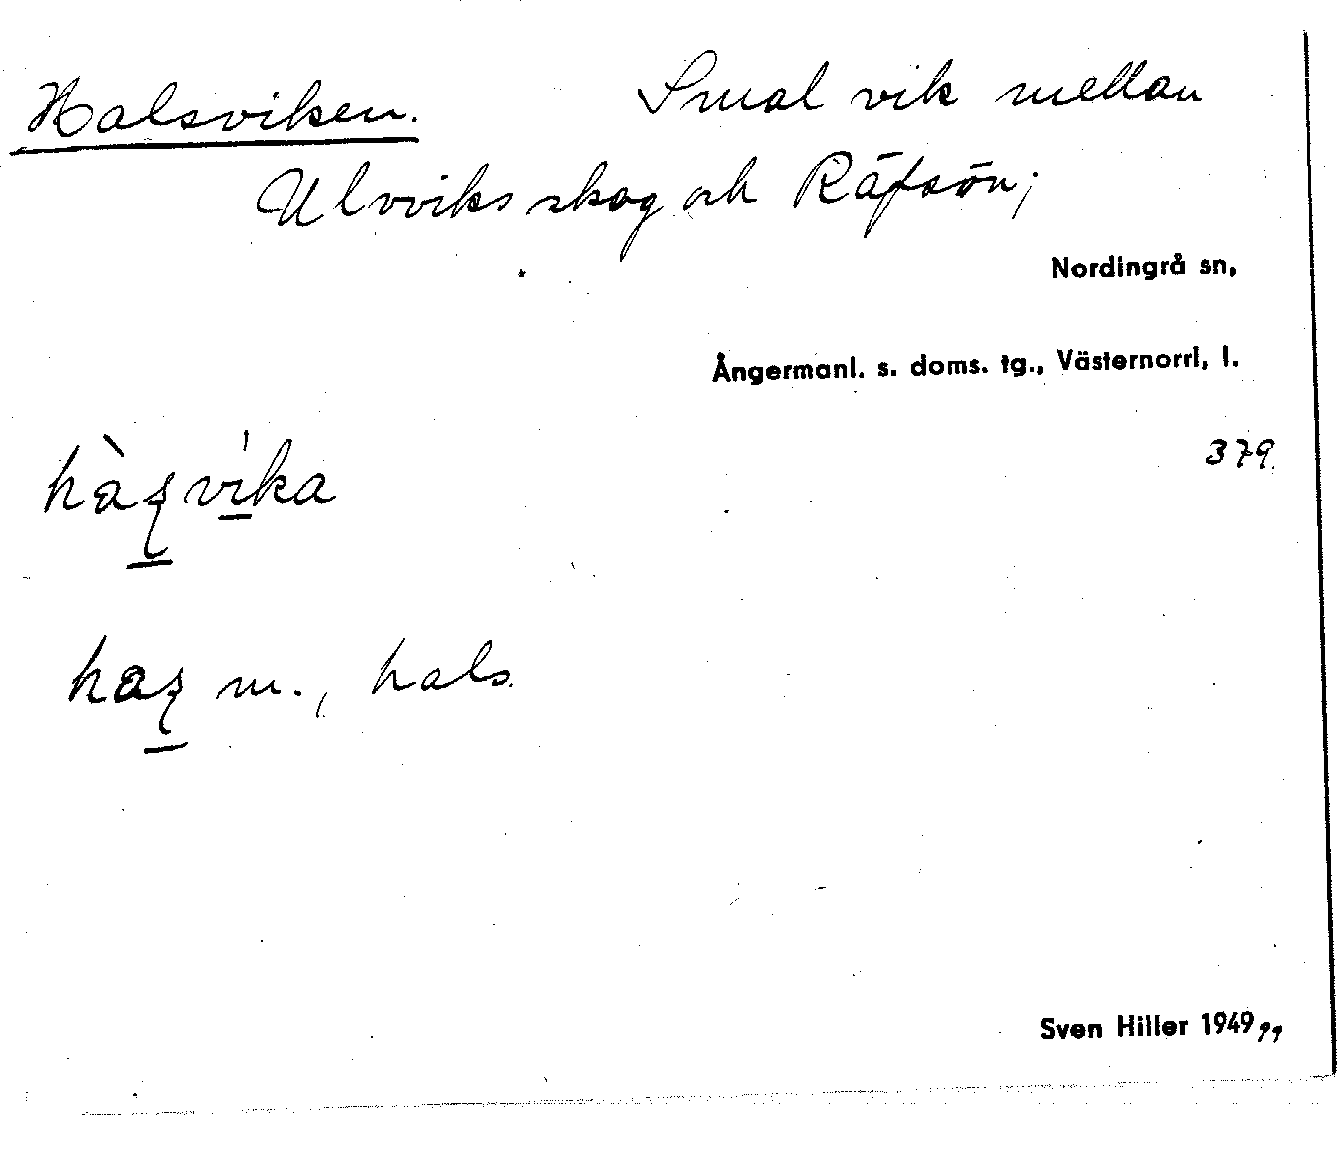 Halsviken. Smal vik mellan
Ulvviks skog och Räfsön;
Nordingrå sn,
Ångermanl. s. doms. tg., Västernorrl. l.
379.
m., hals.
Sven Hiller 1949